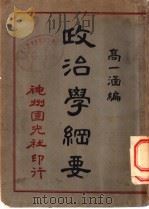 高一涵編
政治學綱要
神州國光社印行